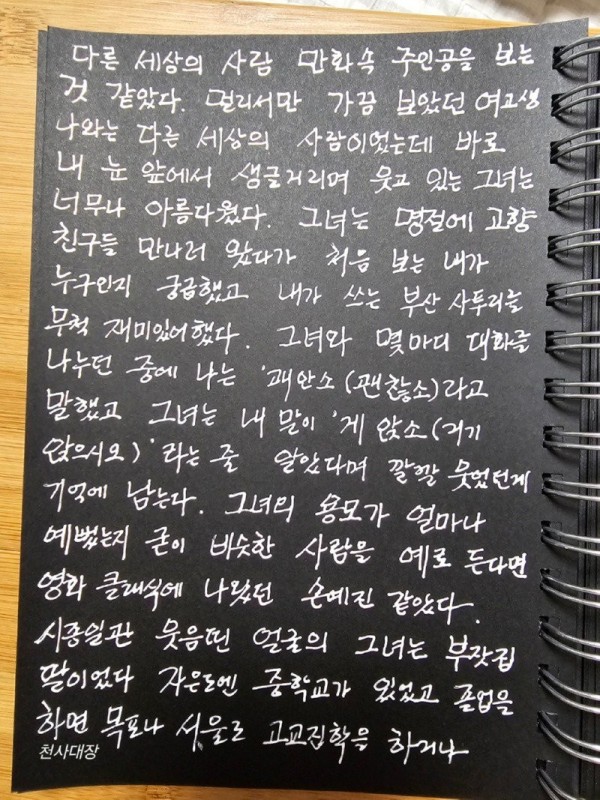 다른 세상의 사람 만화속 주인공을 보는
것 같았다. 멀리서만 가끔 보았던 여고생
나와는 다른 세상의 사람이었는데 바로
내 눈 앞에서 생글거리며 웃고 있는 그녀는
너무나 아름다웠다. 그녀는 명절에 고향
친구들 만나러 왔다가 처음 보는 내가
누구인지 궁금했고 내가 쓰는 부산 사투리를
무척 재미있어했다. 그녀와 몇마디 대화를
나누던 중에 나는 '괘안소(괜찮소)라고
말했고 그녀는 내 말이 '게 앉소(거기
앉으시오)'라는 줄 알았다며 깔깔 웃었던게
기억에 남는다. 그녀의 용모가 얼마나
예뻤는지 굳이 비슷한 사람을 예로 든다면
영화 클래식에 나왔던 손예진 같았다.
시종일관 웃음띤 얼굴의 그녀는 부잣집
딸이었다 자은도엔 중학교가 있었고 졸업을
하면 목포나 서울로 고교진학을 하거나
천사대장